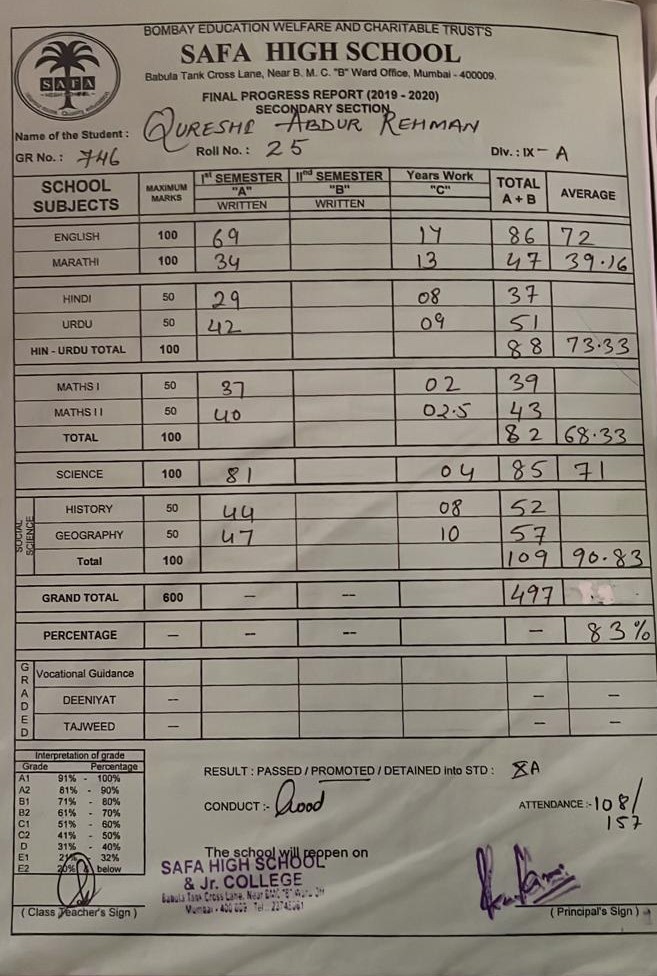 BOMBAY EDUCATION WELFARE AND CHARITABLE TRUST'S
SAFA HIGH SCHOOL
Babula Tank Cross Lane, Near B. M. C. "B" Ward Office, Mumbai - 400009.
SAFA
HIGH SCHOOL
FINAL PROGRESS REPORT (2019 - 2020)
SECONDARY SECTION
Name of the Student : QURESHI ABDUR REHMAN
GR No. : 746 Roll No. : 25 Div. : IX - A
SCHOOL SUBJECTS MAXIMUM MARKS Ist SEMESTER "A" WRITTEN IInd SEMESTER "B" WRITTEN Years Work "C" TOTAL A + B AVERAGE
ENGLISH 100 69 17 86 72
MARATHI 100 34 13 47 39.16
HINDI 50 29 08 37
URDU 50 42 09 51
HIN - URDU TOTAL 100 88 73.33
MATHS I 50 37 02 39
MATHS I I 50 40 02.5 43
TOTAL 100 82 68.33
SCIENCE 100 81 04 85 71
SOCIAL SCIENCE
HISTORY 50 44 08 52
GEOGRAPHY 50 47 10 57
Total 100 109 90.83
GRAND TOTAL 600 -- -- 497
PERCENTAGE -- -- -- -- 83%
GRADED
Vocational Guidance
DEENIYAT -- -- --
TAJWEED -- -- --
Interpretation of grade
Grade Percentage
A1 91% - 100%
A2 81% - 90%
B1 71% - 80%
B2 61% - 70%
C1 51% - 60%
C2 41% - 50%
D 31% - 40%
E1 21% - 32%
E2 20% & below
RESULT : PASSED / PROMOTED / DETAINED into STD : XA
CONDUCT :- Good
ATTENDANCE :- 108/157
The school will reopen on
SAFA HIGH SCHOOL
& Jr. COLLEGE
Babula Tank Cross Lane, Near BMC "B" Ward
Mumbai - 400 009. Tel.:
( Class Teacher's Sign )
( Principal's Sign )